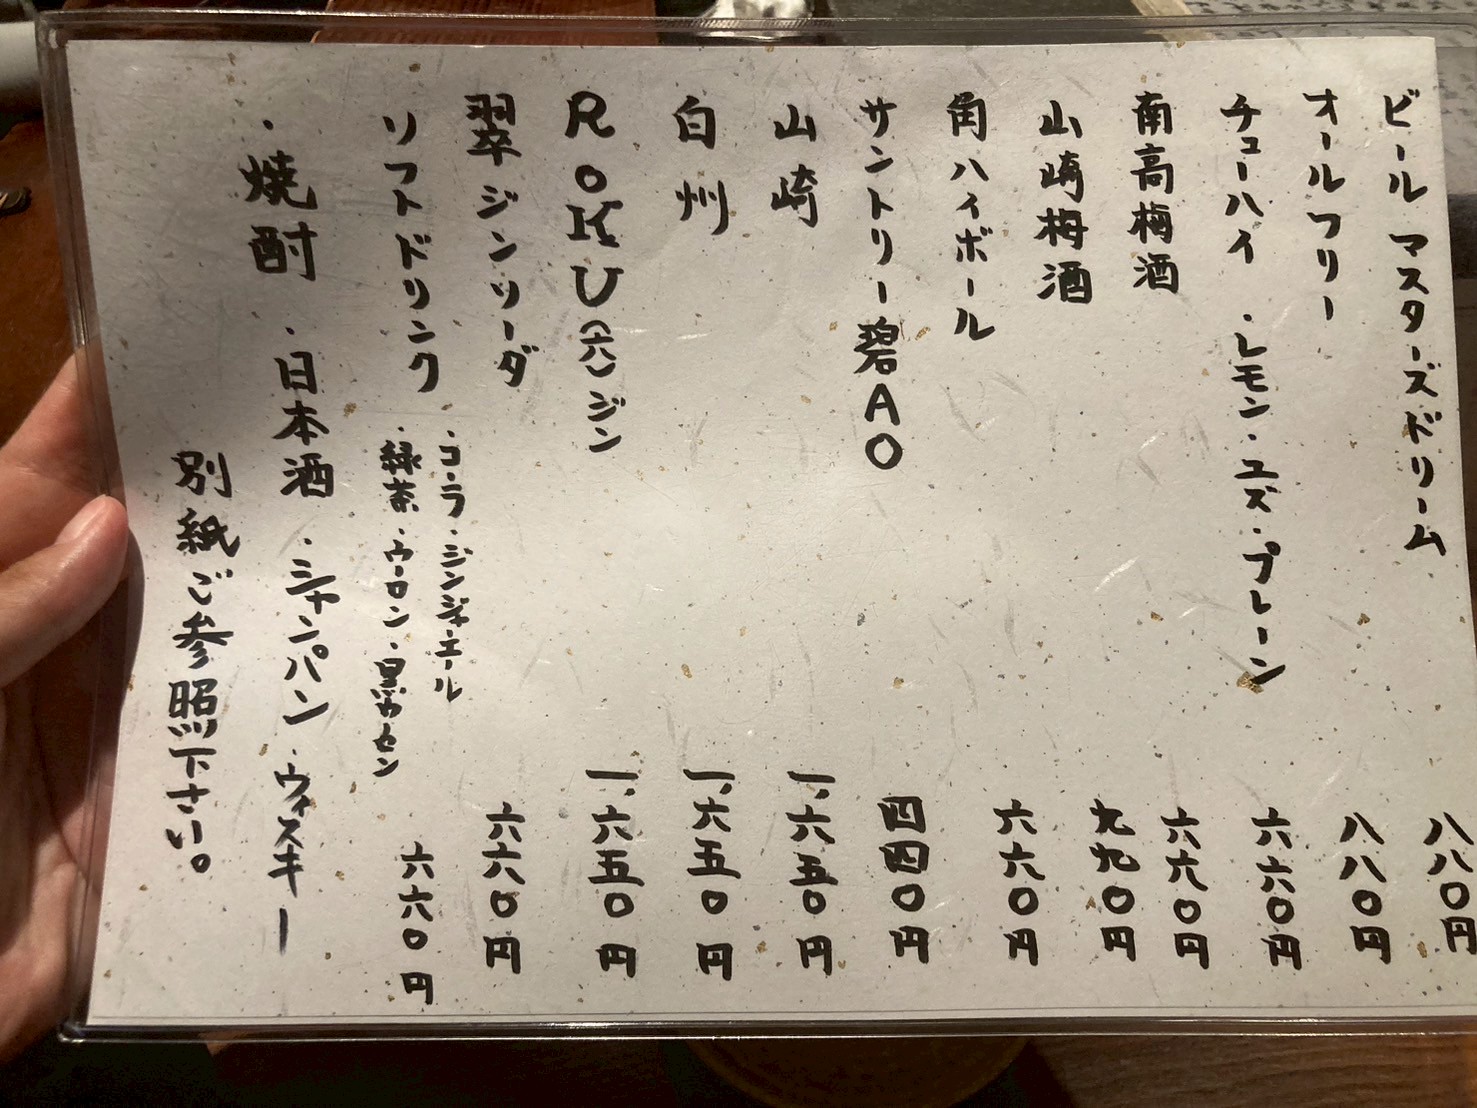 ビール マスターズドリーム 八八〇円
オールフリー 八八〇円
チューハイ ・レモン・ユズ・プレーン 六六〇円
南高梅酒 六六〇円
山崎梅酒 九九〇円
角ハイボール 六六〇円
サントリー碧AO 四四〇円
山崎 一、六五〇円
白州 一、六五〇円
ROKU(六)ジン 一、六五〇円
翠ジンソーダ 六六〇円
ソフトドリンク ・コーラ・ジンジャエール
・緑茶・ウーロン・黒 六六〇円
・焼酎 ・日本酒 ・シャンパン ・ウィスキー
別紙ご参照下さい。